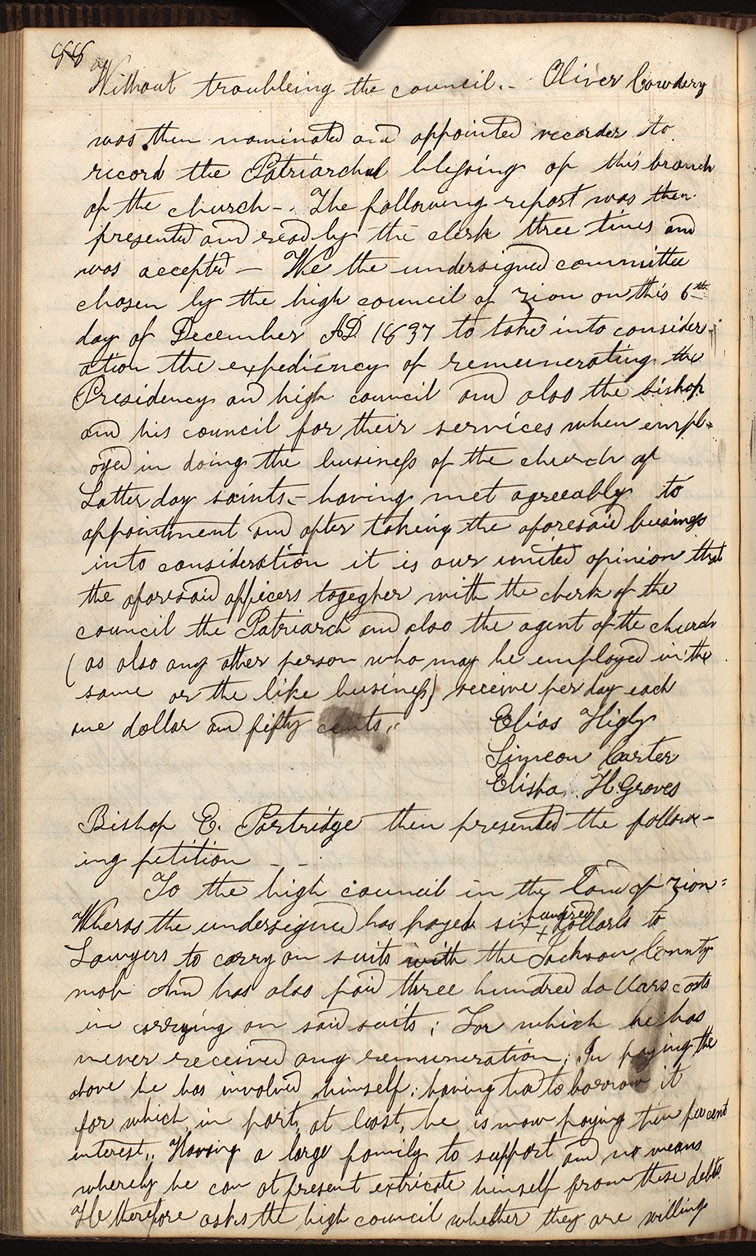 88
Without troubleing the council.- Oliver Cowdery
was then nominated and appointed recorder to
record the Patriarchal blessing of this branch
of the church -. The following report was then
presented and read by the clerk three times and
was accepted - We the undersigned committee
chosen by the high council of Zion on this 6th
day of December AD. 1837 to take into consider-
ation the expediency of remunerating the
Presidency and high council and also the bishop
and his council for their services when empl-
oyed in doing the business of the church of
Latter day saints,- having met agreeably to
appointment and after taking the aforesaid business
into consideration it is our united opinion that
the aforesaid officers togegher with the clerk of the
council the Patriarch and also the agent of the church
(as also any other person who may be employed in the
same or the like business) receive per day each
one dollar and fifty cents,.
Elias Higly
Simeon Carter
Elisha. H. Groves
Bishop E. Partridge then presented the follow-
ing petition - - .
To the high council in the Land of Zion:
Wheras the undersigned has payed six hundred Dollarls to
Lawyers to carry on suits with the Jackson County
mob And has also paid three hundred dollars costs
in carrying on said suits; For which he has
never received any remuneration; In paying the
above he has involved himself: having had to borrow it
for which in part, at least, he is now paying ten per cent
interest,. Having a large family to support and no means
whereby he can at present extricate himself from these debts
He therefore asks the high council whether they are willing